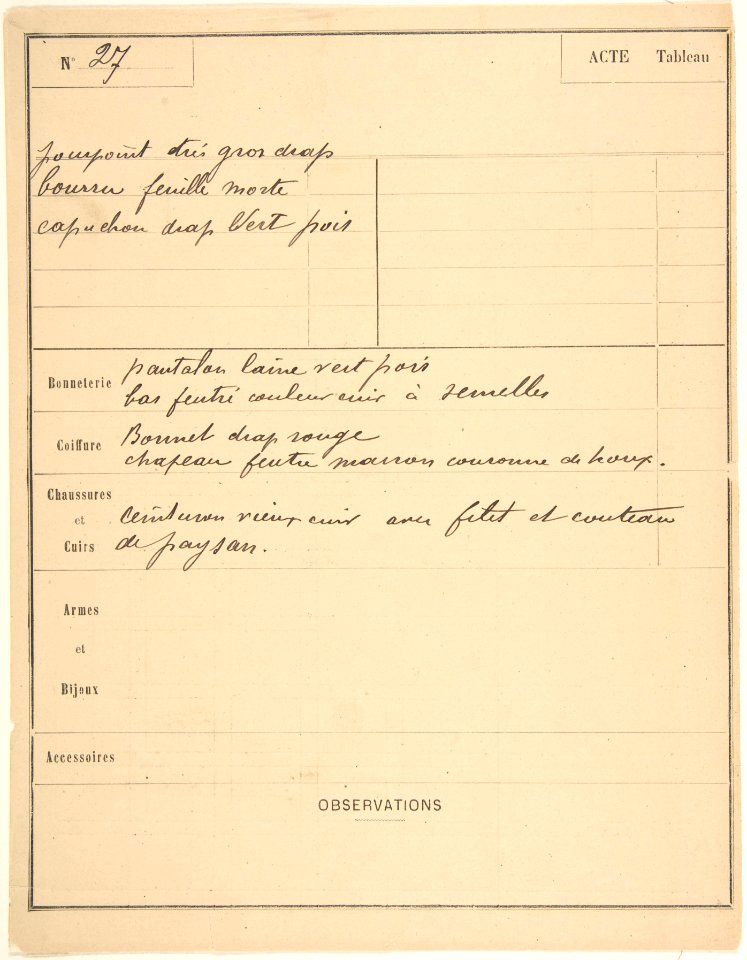 N° 27
ACTE Tableau
pourpoint très gros drap
bourru feuille morte
capuchon drap Vert pois
Bonneterie
pantalon laine vert pois
bas feutré couleur cuir à semelles
Coiffure
Bonnet drap rouge
chapeau feutre marron couronne de houx.
Chaussures
et
Cuirs
ceinturon vieux cuir avec filet et couteau
de paysan.
Armes
et
Bijoux
Accessoires
OBSERVATIONS